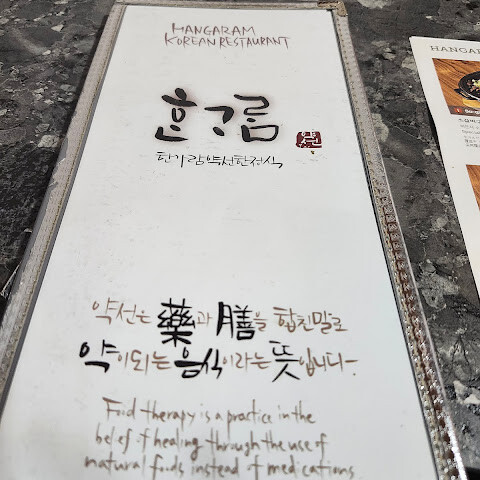 HANGARAM
KOREAN RESTAURANT
한가람
약선
한가람약선한정식
약선은 藥과 膳을 합친말로
약이되는 음식이라는 뜻입니다~
Food therapy is a practice in the
belief of healing through the use of
natural foods instead of medications
HANGAR